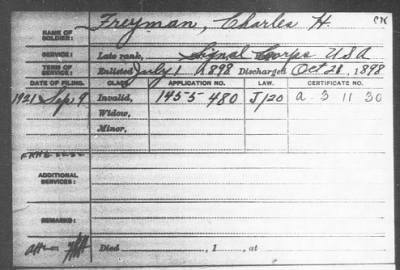 Freyman, Charles H
NAME OF SOLDIER:
SERVICE: Late rank, Signal Corps USA
TERM OF SERVICE: Enlisted July 1 1898 Discharged Oct 28, 1898
DATE OF FILING. CLASS. APPLICATION NO. LAW. CERTIFICATE NO.
1921 Sep 9 Invalid, 1455480 J/20 a-3-11-30
Widow,
Minor,
ADDITIONAL SERVICES:
REMARKS:
Died , 1 , at